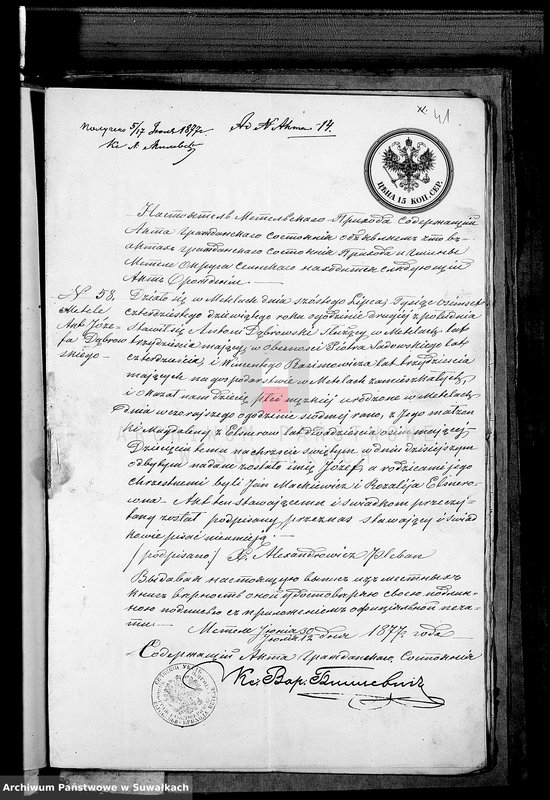 41
Получено 5/17 Іюля 1877г
Ad N Akta - 14.
ЦѢНА 15 КОП. СЕР.
Настоятель Метельскаго Прихода Содержащій
Акта гражданскаго состоянія объявляетъ что въ
актахъ гражданскаго состоянія Прихода и гмины
Метеле Округа Сейнскаго находится слѣдующій
Актъ О рожденіи
N 58.
Metele
Akt Józe-
fa Dąbrow
skiego
Działo się w Metelach dnia szóstego Lipca, Tysiąc osimset
czterdziestego dziewiątego roku o godzinie drugiej z południa
Stawił się Antoni Dąbrowski Służący w Metelach lat
trzydzieści mający, w obecności Piotra Sadowskiego lat
czterdzieści, i Wincentego Rasimowicza lat trzydzieści
mającym na gospodarstwie w Metelach zamieszkałych,
i okazał nam dziecię płci męzkiej urodzone w Metelach
Dnia wczorajszego o godzinie siódmej rano, z Jego małżon
ki Magdaleny z Elsnerów lat dwadzieścia ośm mającej
Dziecięciu temu na chrzcie świętym w dniu dzisiejszym
odbytym nadane zostało imię Józef, a rodzicami jego
chrzestnemi byli Jan Mackiewicz i Rozalija Elsnero-
wna. Akt ten stawającemu i świadkom przeczy-
tany został podpisany przez nas stawający i świad
kowie pisać nieumieją.
/podpisano/ X. Alexandrowicz Pleban
Выдавая настоящую выпись изъ местныхъ
книгъ верность оной удостоверяю своею подпи-
сью съ приложеніемъ оффиціяльной печа-
ти. Метеле Іюня 30 Іюля 12 дня 1877 года
Содержащій Акта Гражданскаго Состоянія
Кс. Вар.
Archiwum Państwowe w Suwałkach